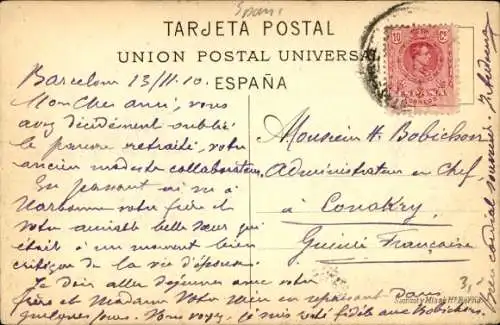 Espane
TARJETA POSTAL
UNION POSTAL UNIVERSAL
ESPAÑA
10 Cs 10
CORREOS
Barcelone 13/11.10.
Mon cher ami, vous
avez décidément oublié
le pauvre retraité, votre
ancien modeste collaborateur,
En passant ai vu à
Narbonne votre frère et
votre aimable belle sœur qui
était à un moment bien
critique de la vie d'épouse.
Je dois aller déjeuner avec votre
frère et Madame votre mère en repassant dans
quelques jours. Vous voyez, je suis resté fidèle aux Bobichons.
Monsieur H. Bobichon
Administrateur en Chef,
à Conakry,
Guinée Française
cordial souvenir.
3,-